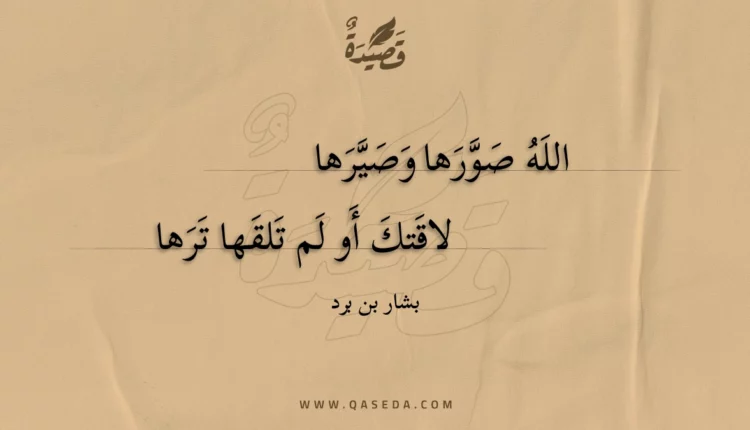 قَصِيدَةٌ
اللَهُ صَوَّرَها وَصَيَّرَها
لاقَتكَ أَو لَم تَلقَها تَرَها
بشار بن برد
WWW.QASEDA.COM